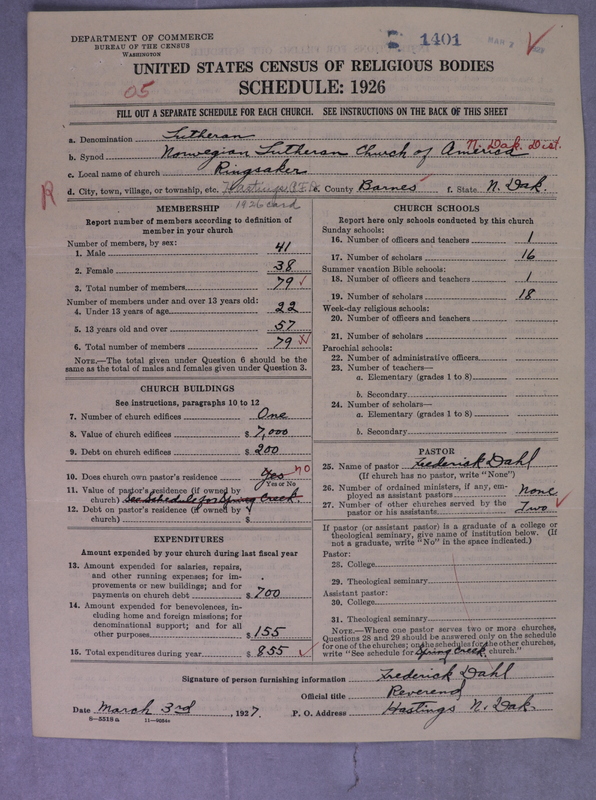 DEPARTMENT OF COMMERCE
BUREAU OF THE CENSUS
WASHINGTON
1401
MAR 2 1927
UNITED STATES CENSUS OF RELIGIOUS BODIES
05
SCHEDULE: 1926
FILL OUT A SEPARATE SCHEDULE FOR EACH CHURCH. SEE INSTRUCTIONS ON THE BACK OF THIS SHEET
a. Denomination Lutheran
b. Synod Norwegian Lutheran Church of America N. Dak. Dist.
c. Local name of church Ringsaker
R d. City, town, village, or township, etc. Hastings, P.O. e. County Barnes f. State N. Dak.
1926 card
MEMBERSHIP
Report number of members according to definition of member in your church
Number of members, by sex:
1. Male 41
2. Female 38
3. Total number of members 79
Number of members under and over 13 years old:
4. Under 13 years of age 22
5. 13 years old and over 57
6. Total number of members 79
NOTE.—The total given under Question 6 should be
same as the total of males and females given under Question 3.
CHURCH BUILDINGS
See instructions, paragraphs 10 to 12
7. Number of church edifices One
8. Value of church edifices $ 7,000
9. Debt on church edifices $ 200
10. Does church own pastor's residence Yes no
Yes or No
11. Value of pastor's residence (if owned by
church) See Schedule for Spring Creek.
12. Debt on pastor's residence (if owned by
church) $
EXPENDITURES
Amount expended by your church during last fiscal year
13. Amount expended for salaries, repairs,
and other running expenses; for im-
provements or new buildings; and for
payments on church debt $ 700
14. Amount expended for benevolences, in-
cluding home and foreign missions; for
denominational support; and for all
other purposes $ 155
15. Total expenditures during year $ 855
CHURCH SCHOOLS
Report here only schools conducted by this church
Sunday schools:
16. Number of officers and teachers 1
17. Number of scholars 16
Summer vacation Bible schools:
18. Number of officers and teachers 1
19. Number of scholars 18
Week-day religious schools:
20. Number of officers and teachers
21. Number of scholars
Parochial schools:
22. Number of administrative officers
23. Number of teachers—
a. Elementary (grades 1 to 8)
b. Secondary
24. Number of scholars—
a. Elementary (grades 1 to 8)
b. Secondary
PASTOR
25. Name of pastor Frederick Dahl
(If church has no pastor, write "None")
26. Number of ordained ministers, if any, em-
ployed as assistant pastors None
27. Number of other churches served by the
pastor or his assistants Two
If pastor (or assistant pastor) is a graduate of a college or
theological seminary, give name of institution below. (If
not a graduate, write "No" in the space indicated.)
Pastor:
28. College
29. Theological seminary
Assistant pastor:
30. College
31. Theological seminary
NOTE.—Where one pastor serves two or more churches,
Questions 28 and 29 should be answered only on the schedule
for one of the churches; on the schedules for the other churches,
write "See schedule for Spring Creek church."
Signature of person furnishing information Frederick Dahl
Official title Reverend
Date March 3rd, 1927. P. O. Address Hastings N. Dak.